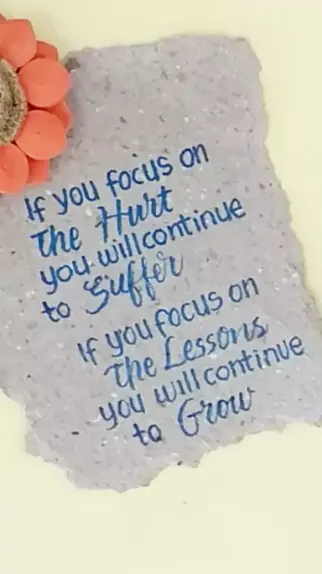 If you focus on
The Hurt
you will continue
to Suffer
If you focus on
The Lessons
you will continue
to Grow